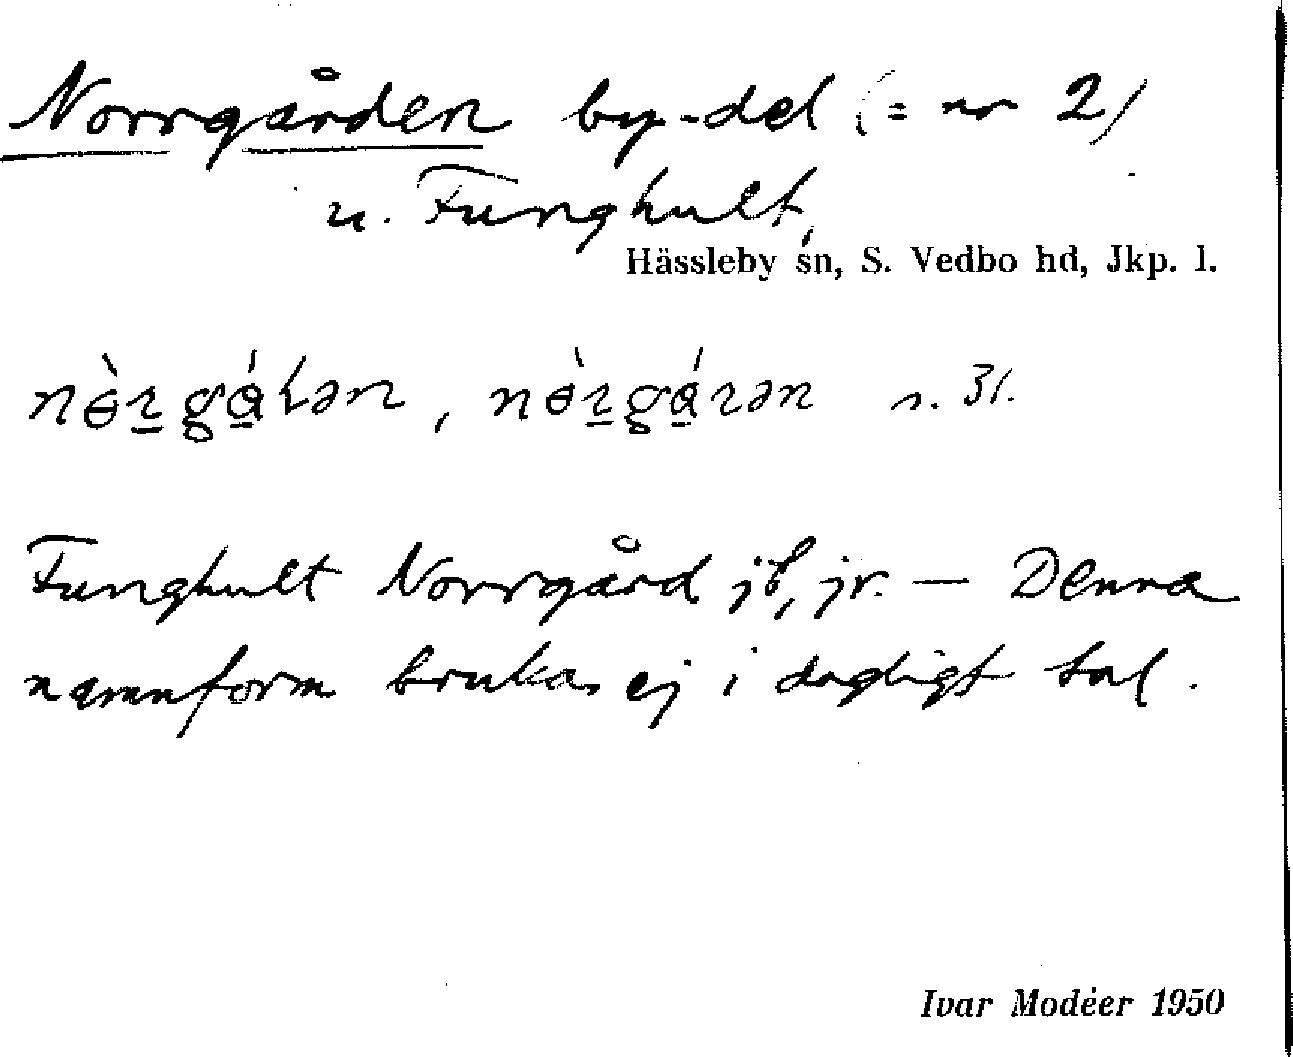 Norrgården by-del (= nr 2)
u. Funghult,
Hässleby sn, S. Vedbo hd, Jkp. l.
s. 31.
Funghult Norrgård jb, jr. — Denna
namnform brukas ej i dagligt tal.
Ivar Modéer 1950